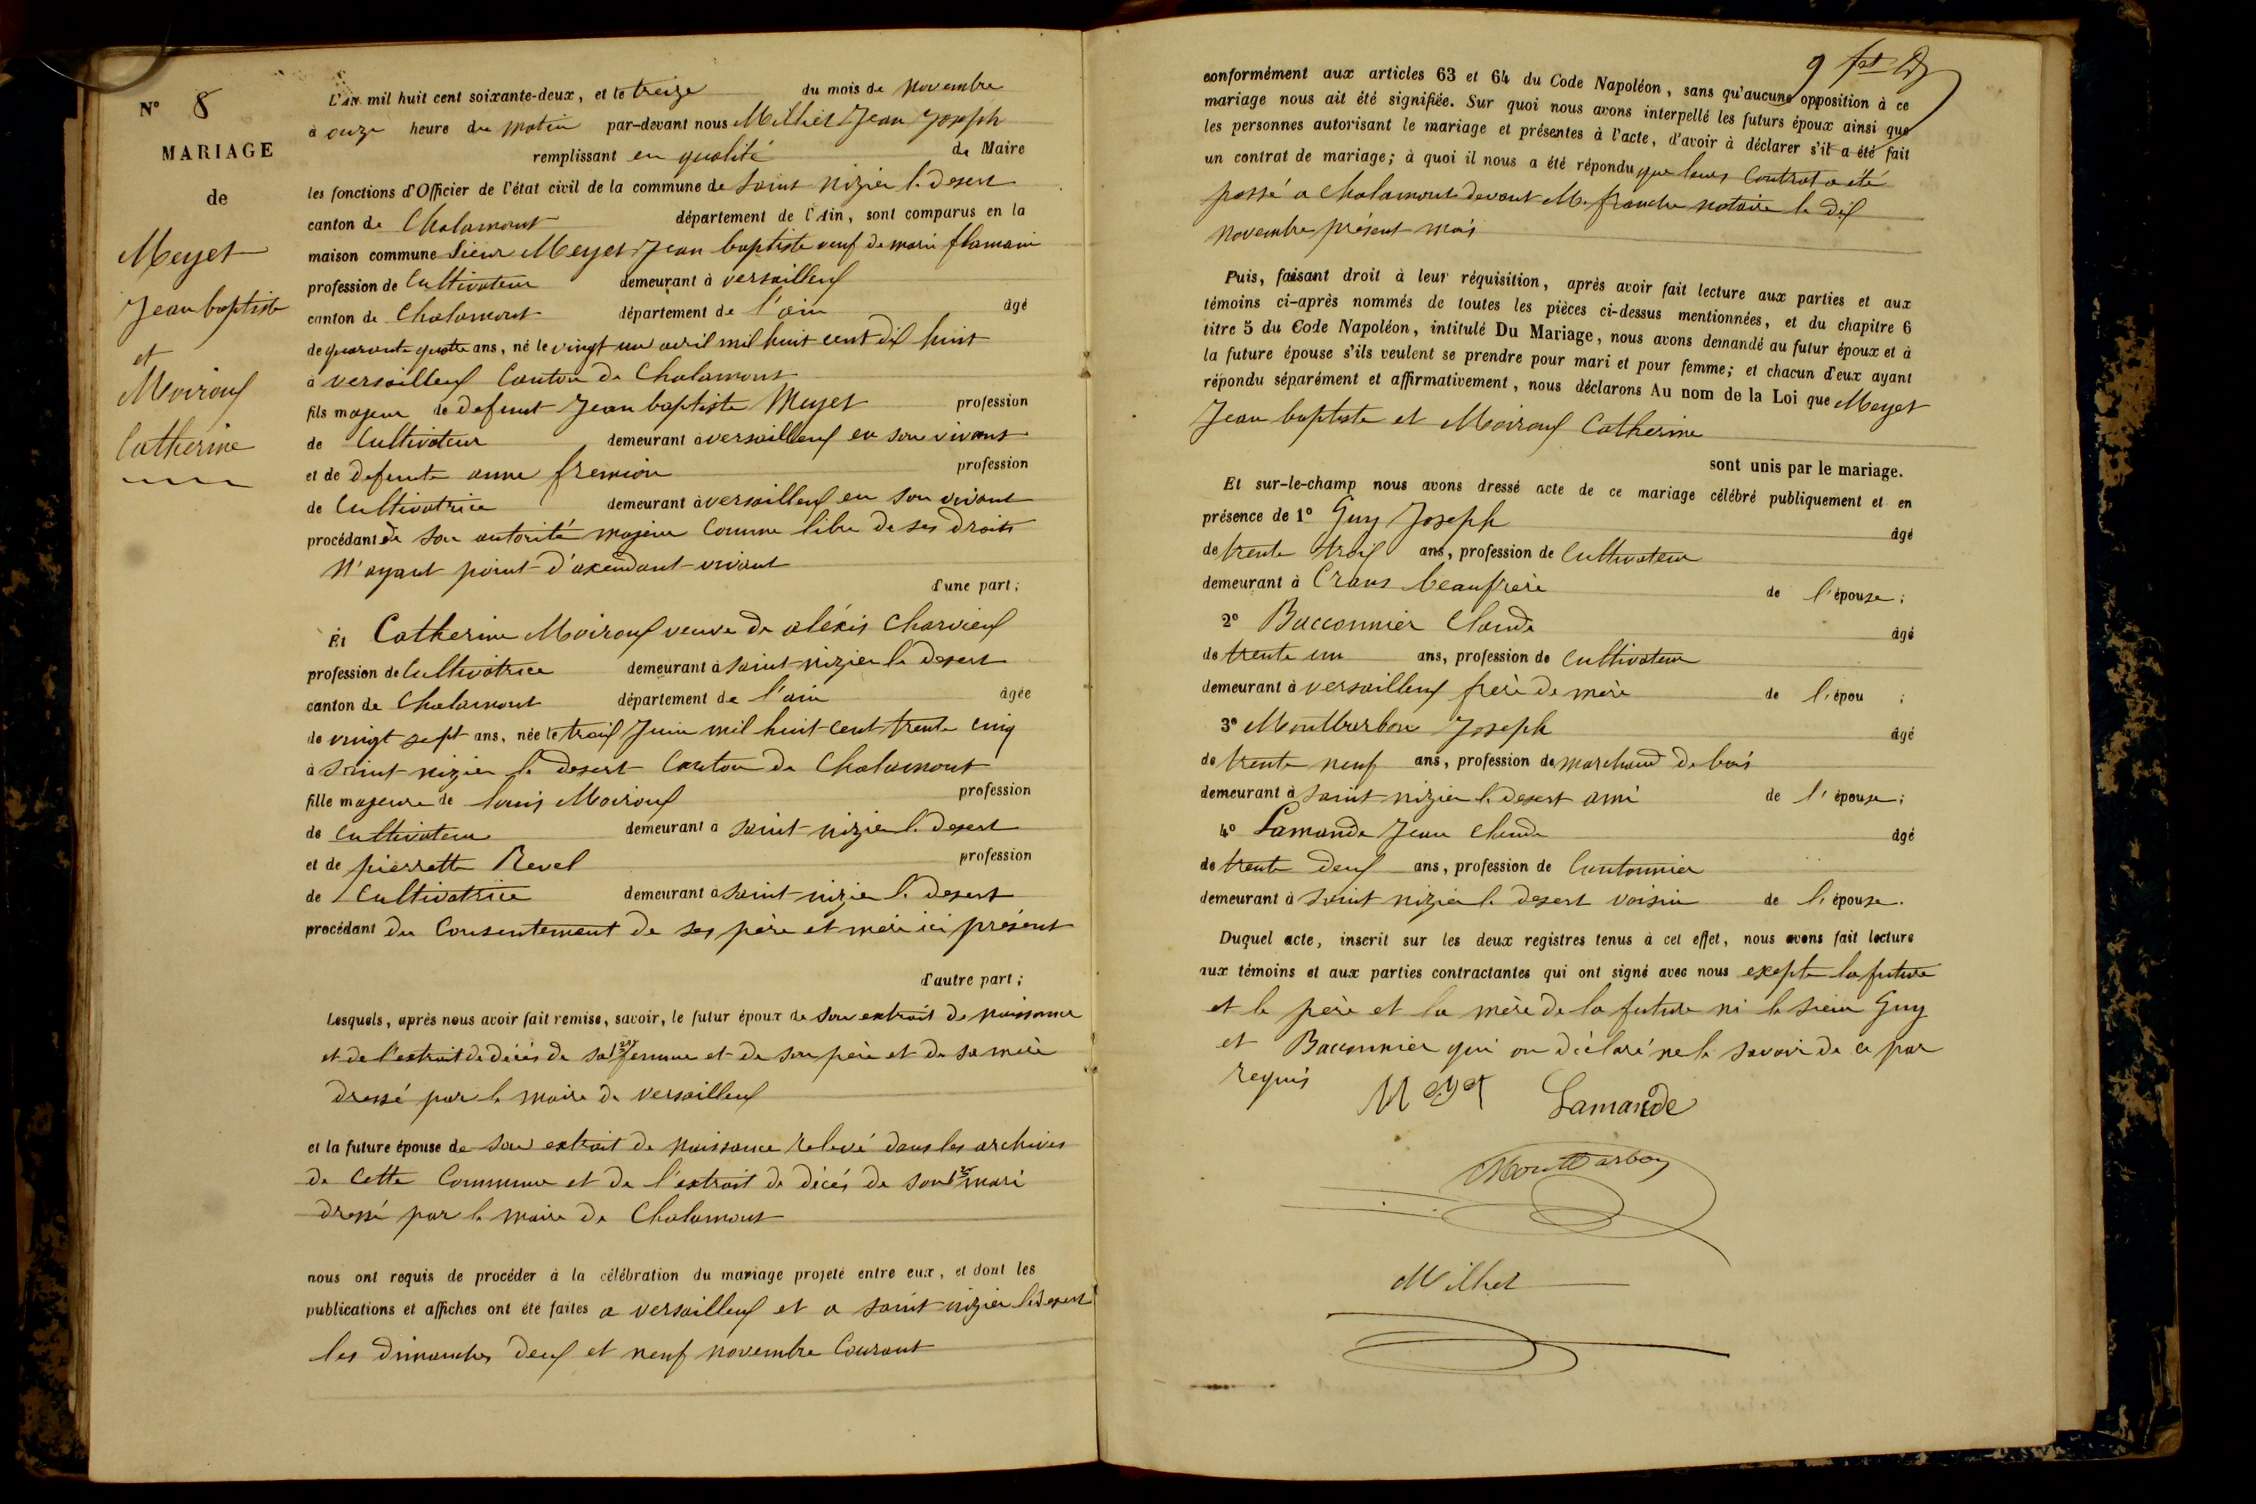 N° 8
MARIAGE
de
Meyet
Jean baptiste
et
Moiroux
Catherine
L'an mil huit cent soixante-deux, et le treize du mois de novembre
à onze heure du matin par-devant nous Milliet Jean Joseph
remplissant en qualité de Maire
les fonctions d'Officier de l'état civil de la commune de Saint nizier le desert
canton de Chalamont département de l'Ain, sont comparus en la
maison commune Sieur Meyet Jean baptiste veuf de marie flamain
profession de Cultivateur demeurant à versailleux
canton de Chalamont département de l'ain âgé
de quarante quatre ans, né le vingt un avril mil huit cent dix huit
à versailleux Canton de Chalamont
fils majeur de defunt Jean baptiste Meyet profession
de Cultivateur demeurant à versailleux en son vivant
et de defunte anne fremion profession
de Cultivatrice demeurant à versailleux en son vivant
procédant de son autorité majeur comme libre de ses droits
N'ayant point d'axendant vivant
d'une part;
Et Catherine Moiroux veuve de aléxis Charvieux
profession de Cultivatrice demeurant à saint nizier le desert
canton de Chalamont département de l'ain âgée
de vingt sept ans, née le troix Juin mil huit cent trente cinq
à saint nizier le desert Canton de Chalamont
fille majeure de louis Moiroux profession
de Cultivateur demeurant à saint nizier le desert
et de pierrette Revel profession
de Cultivatrice demeurant à saint nizier le desert
procédant du Consentement de ses père et mère ici présent
d'autre part;
Lesquels, après nous avoir fait remise, savoir, le futur époux de son extrait de naissance
et de l'extrait de décès de sa 1ère femme et de son père et de sa mère
dressé par le maire de versailleux
et la future épouse de son extrait de naissance relevé dans les archives
de Cette Commune et de l'extrait de décés de son 1er mari
dressé par le maire de Chalamont
nous ont requis de procéder à la célébration du mariage projeté entre eux, et dont les
publications et affiches ont été faites a versailleux et a saint nizier le desert
les dimanches deux et neuf novembre Courant
9
conformément aux articles 63 et 64 du Code Napoléon, sans qu'aucune opposition à ce
mariage nous ait été signifiée. Sur quoi nous avons interpellé les futurs époux ainsi que
les personnes autorisant le mariage et présentes à l'acte, d'avoir à déclarer s'il a été fait
un contrat de mariage; à quoi il nous a été répondu que leurs Contrat a été
passé a Chalamont devant Me franche notaire le dix
novembre présent mois
Puis, faisant droit à leur réquisition, après avoir fait lecture aux parties et aux
témoins ci-après nommés de toutes les pièces ci-dessus mentionnées, et du chapitre 6
titre 5 du Code Napoléon, intitulé Du Mariage, nous avons demandé au futur époux et à
la future épouse s'ils veulent se prendre pour mari et pour femme; et chacun d'eux ayant
répondu séparément et affirmativement, nous déclarons Au nom de la Loi que Meyet
Jean baptiste et Moiroux Catherine
sont unis par le mariage.
Et sur-le-champ nous avons dressé acte de ce mariage célébré publiquement et en
présence de 1° Guy Joseph âgé
de trente troix ans, profession de Cultivateur
demeurant à Crans beaufrère de l'épouse;
2° Bacconnier Claude âgé
de trente un ans, profession de Cultivateur
demeurant à versailleux frère de mère de l'épou ;
3° Montbarbon Joseph âgé
de trente neuf ans, profession de marchand de bois
demeurant à saint nizier le desert ami de l'épouse;
4° Lamande Jean Claude âgé
de trente deux ans, profession de Cantonnier
demeurant à saint nizier le desert voisin de l'épouse.
Duquel acte, inscrit sur les deux registres tenus à cet effet, nous avons fait lecture
aux témoins et aux parties contractantes qui ont signé avec nous exepte la future
et le père et la mère de la future ni le sieur Guy
et Bacconnier qui on déclaré ne le savoir de ce par
requis
Meyet Lamande
Montbarbon
Milliet